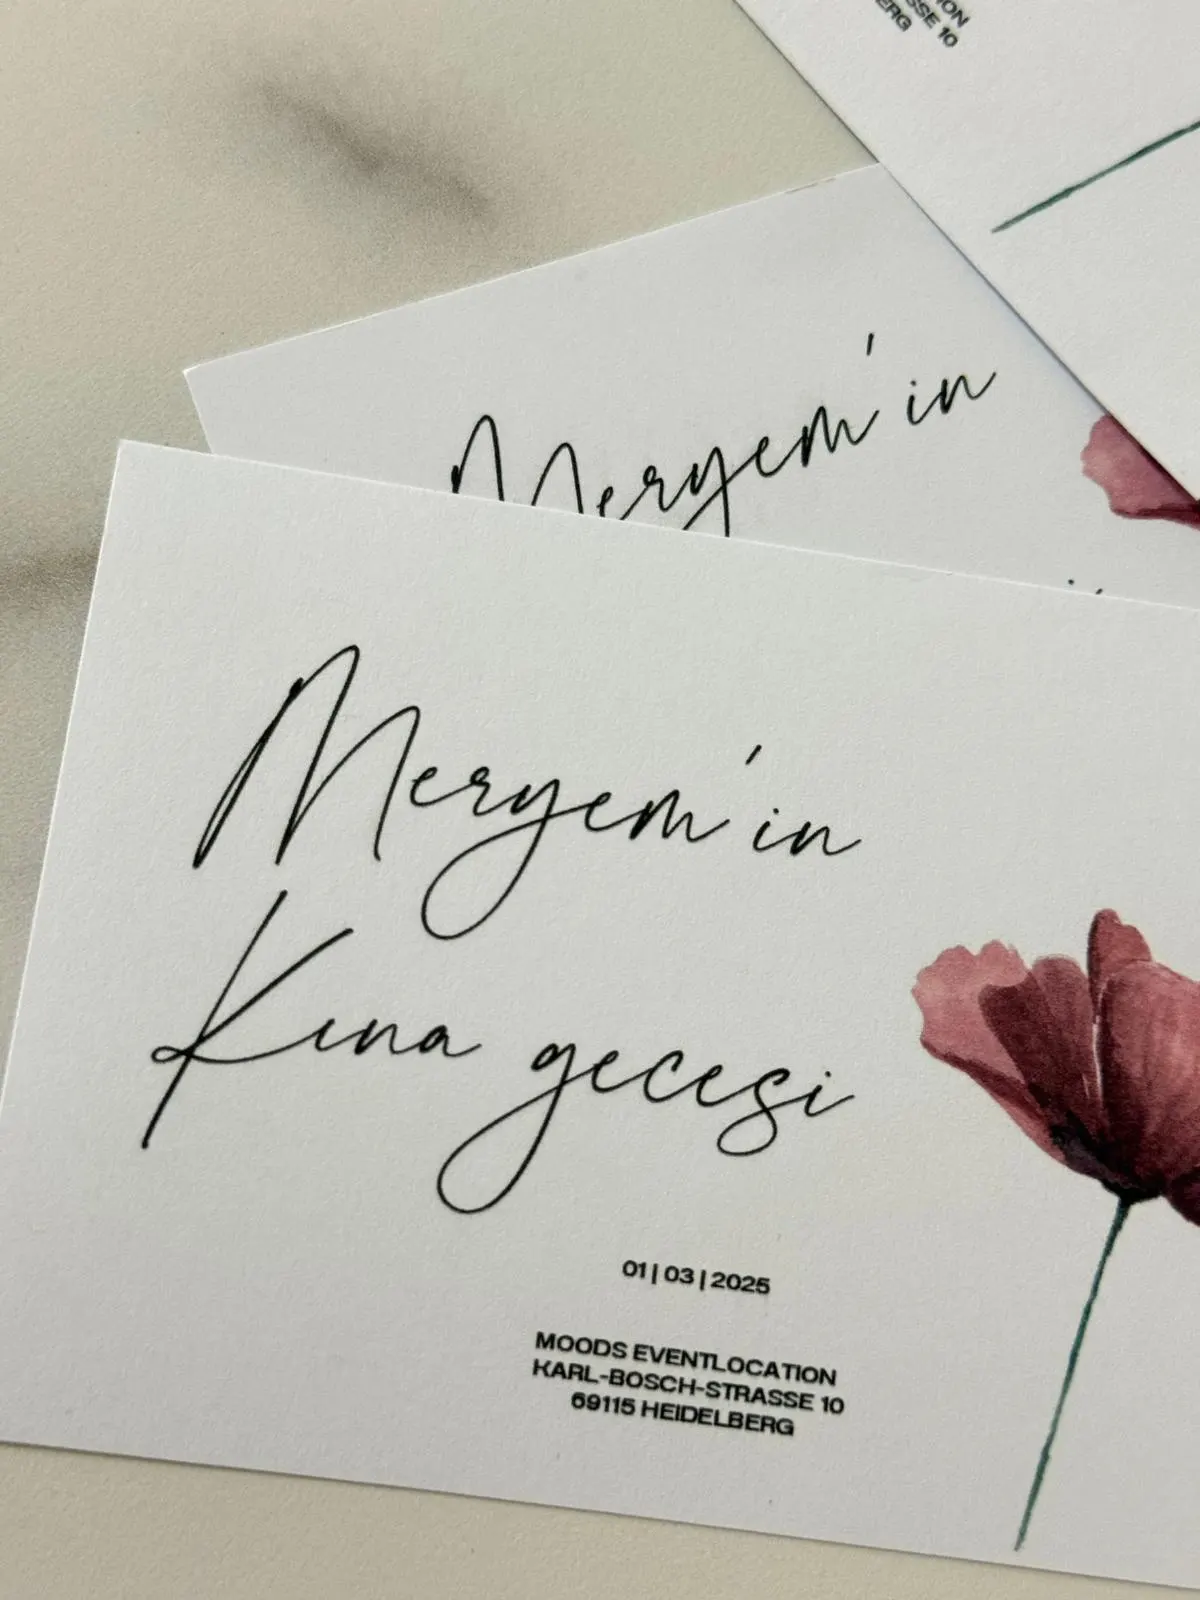 ION
SSE 10
ERG
Meryem'in
Meryem'in
Kına gecesi
01 | 03 | 2025
MOODS EVENTLOCATION
KARL-BOSCH-STRASSE 10
69115 HEIDELBERG